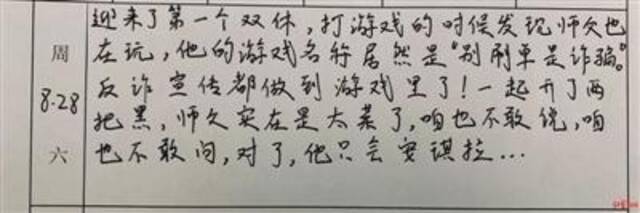 迎来了第一个双休,打游戏的时候发现师父也
周
在玩,他的游戏名称居然是"别刷单是诈骗。"
8.28
反诈宣传都做到游戏里了!一起开了两
把黑,师父实在是太菜了,咱也不敢说,咱
六
也不敢问,对了,他只会安琪拉...